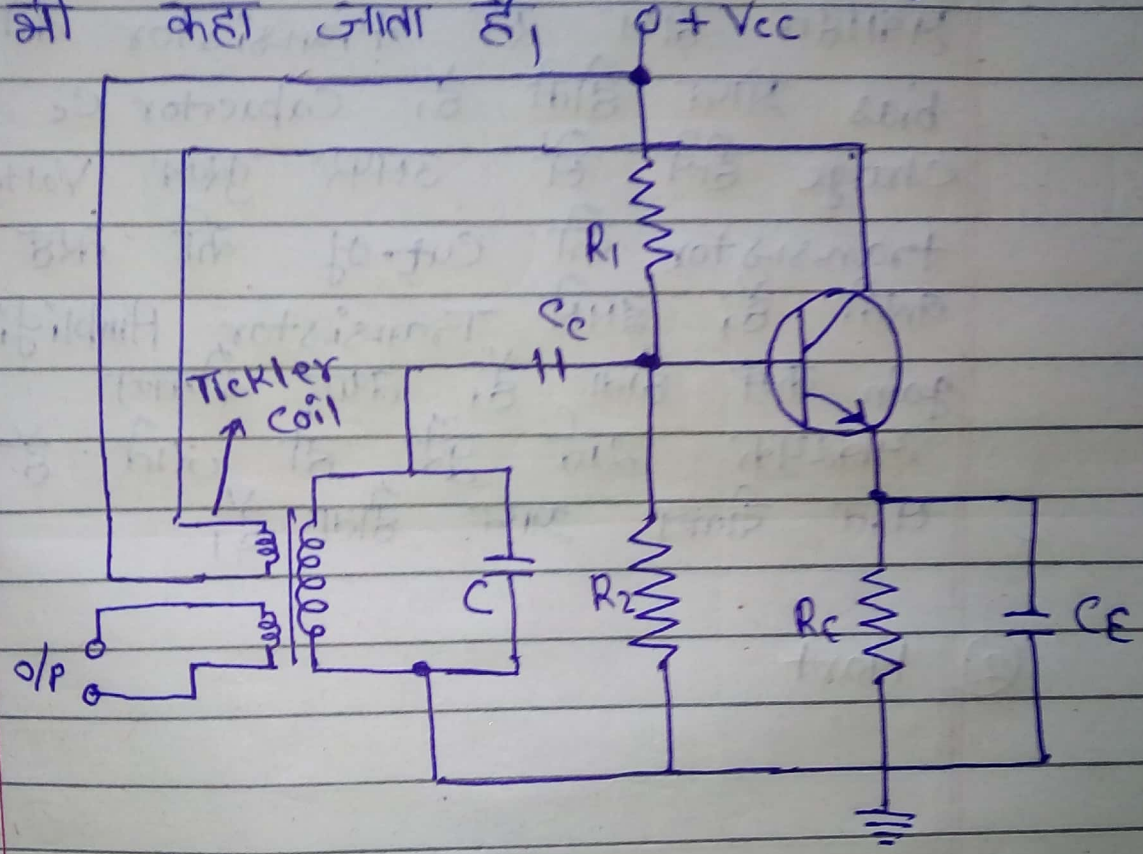 भी कहा जाता है, + Vcc
R1
Cc
Tickler
coil
C
R2
RE
CE
O/P